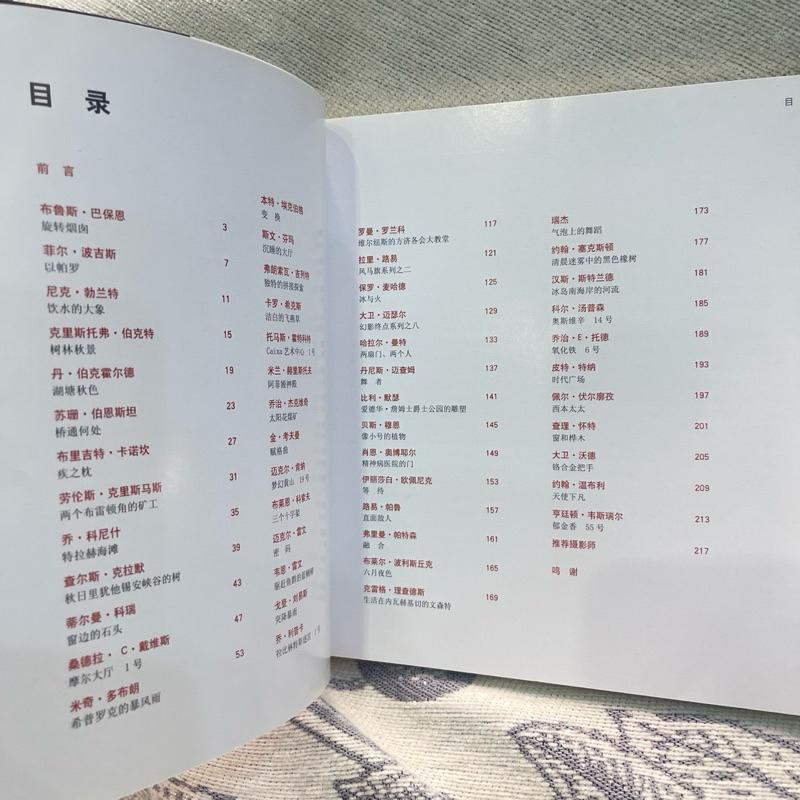 目 录
前 言
布鲁斯·巴保恩
旋转烟囱 3
菲尔·波吉斯
以帕罗 7
尼克·勃兰特
饮水的大象 11
克里斯托弗·伯克特
树林秋景 15
丹·伯克霍尔德
湖塘秋色 19
苏珊·伯恩斯坦
桥通何处 23
布里吉特·卡诺坎
疾之枕 27
劳伦斯·克里斯马斯
两个布雷顿角的矿工 31
乔·科尼什
特拉赫海滩 35
查尔斯·克拉默
秋日里犹他锡安峡谷的树 39
蒂尔曼·科瑞
窗边的石头 43
桑德拉·C·戴维斯
摩尔大厅 1号 47
米奇·多布朗
希普罗克的暴风雨 53
本特·埃克伯格
变 换
斯文·芬玛
沉睡的大厅
弗朗索瓦·吉列特
独特的拼接探索
卡罗·希克斯
洁白的飞燕草
托马斯·霍特科特
Caixa 艺术中心 1号
米兰·赫里斯托夫
阿菲娅神殿
乔治·杰克维奇
太阳花煤矿
金·考夫曼
赋格曲
迈克尔·肯纳
梦幻黄山 19号
布莱恩·科索夫
三个十字架
迈克尔·雷文
密 码
韦恩·雷文
戈登·刘易斯
突降暴雨
乔·利普卡
拉比林特斯迷宫 1号
目
罗曼·罗兰科 117
维尔纽斯的方济各会大教堂
拉里·路易 121
风马旗系列之二
保罗·麦哈德 125
冰与火
大卫·迈瑟尔 129
幻影终点系列之八
哈拉尔·曼特 133
两扇门、两个人
丹尼斯·迈查姆 137
舞 者
比利·默瑟 141
爱德华·詹姆士爵士公园的雕塑
贝斯·穆恩 145
像小号的植物
肖恩·奥博耶尔 149
精神病医院的门
伊丽莎白·欧佩尼克 153
等 待
路易·帕鲁 157
直面敌人
弗里曼·帕特森 161
融 合
布莱尔·波利斯丘克 165
六月夜色
克雷格·理查德斯 169
生活在内瓦赫基切的文森特
瑞杰 173
气泡上的舞蹈
约翰·塞克斯顿 177
清晨迷雾中的黑色橡树
汉斯·斯特兰德 181
冰岛南海岸的河流
科尔·汤普森 185
奥斯维辛 14号
乔治·E·托德 189
氧化铁 6号
皮特·特纳 193
时代广场
佩尔·伏尔廓孜 197
西本太太
查理·怀特 201
窗和桦木
大卫·沃德 205
铬合金把手
约翰·温布利 209
天使下凡
亨廷顿·韦斯瑞尔 213
郁金香 55号
推荐摄影师 217
鸣 谢